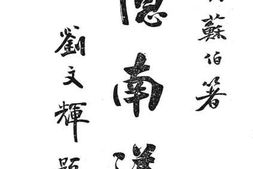 蘇伯著
隱南洋
劉文輝題